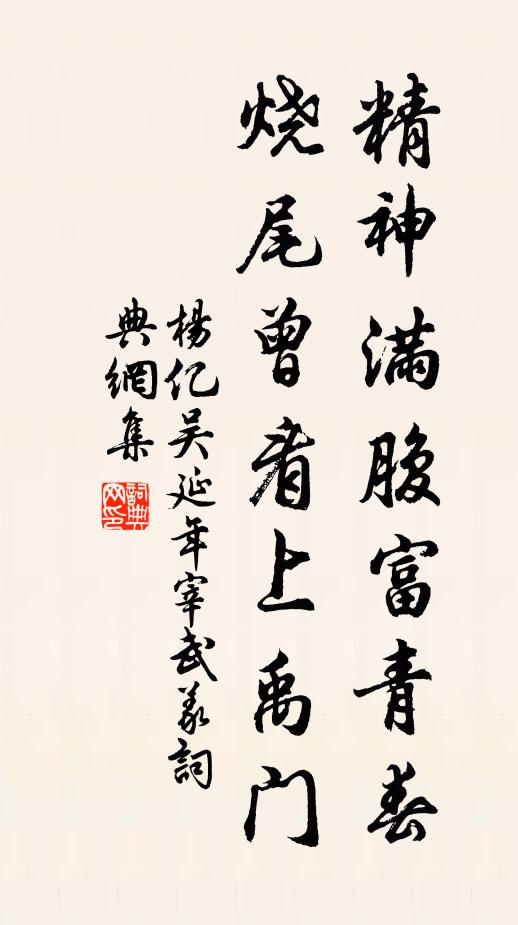 精神满腹富青春
烧尾曾看上禹门
楊亿吴延年宰武义詞
典網集
詞典
网印